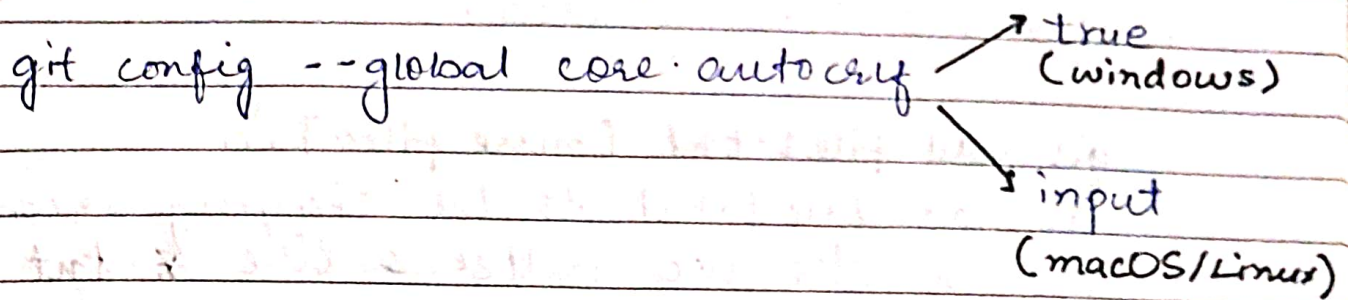 true
git config --global core.autocrlf
(windows)
input
(macOS/Linux)